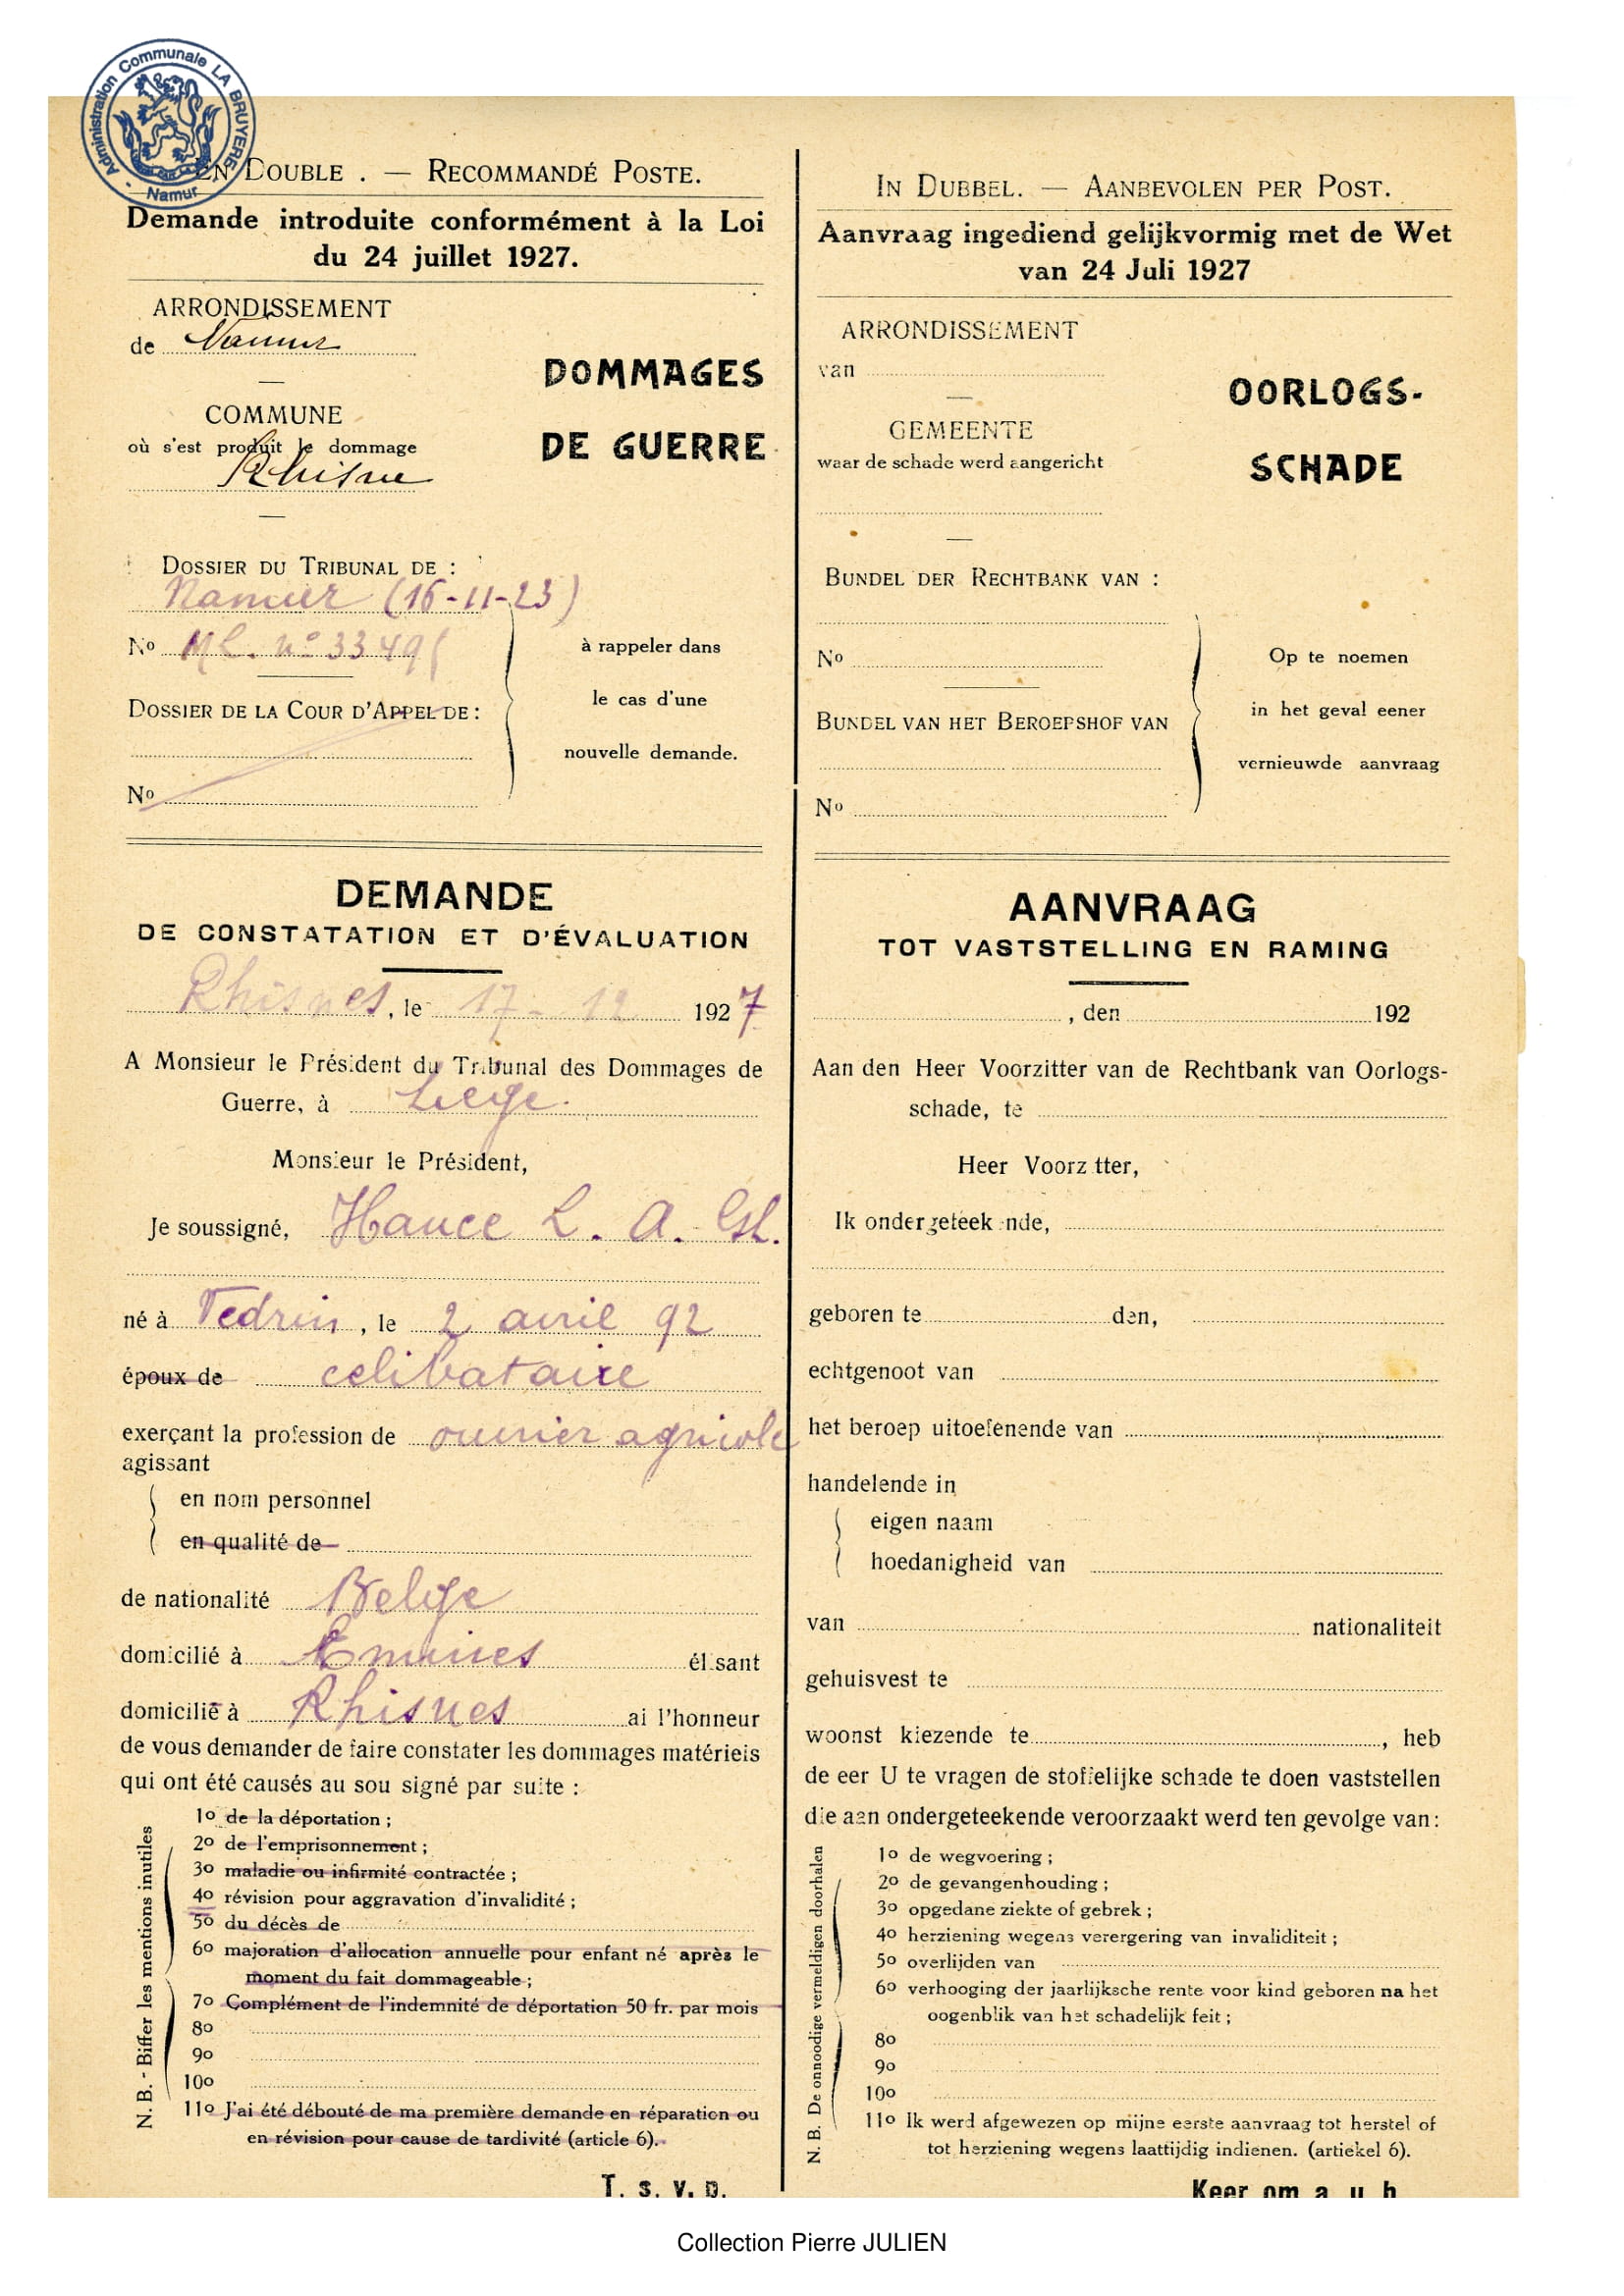 Administration Communale LA BRUYERE - Namur
EN DOUBLE . — RECOMMANDÉ POSTE.
Demande introduite conformément à la Loi
du 24 juillet 1927.
ARRONDISSEMENT
de Namur
COMMUNE
où s'est produit le dommage
Rhisne
DOMMAGES
DE GUERRE
DOSSIER DU TRIBUNAL DE :
Namur (16-11-23)
No
à rappeler dans
DOSSIER DE LA COUR D'APPEL DE :
le cas d'une
nouvelle demande.
No
DEMANDE
DE CONSTATATION ET D'ÉVALUATION
Rhisnes, le 17 - 12 1927
A Monsieur le Président du Tribunal des Dommages de
Guerre, à Liege.
Monsieur le Président,
Je soussigné, Hance L. A.
né à Vedrin, le 2 avril 92
époux de celibataire
exerçant la profession de ouvrier agricole
agissant
en nom personnel
en qualité de
de nationalité Belge
domicilié à Emines élisant
domicilié à Rhisnes ai l'honneur
de vous demander de faire constater les dommages matériels
qui ont été causés au sou signé par suite :
N. B. - Biffer les mentions inutiles
1o de la déportation ;
2o de l'emprisonnement ;
3o maladie ou infirmité contractée ;
4o révision pour aggravation d'invalidité ;
5o du décès de
6o majoration d'allocation annuelle pour enfant né après le
moment du fait dommageable ;
7o Complément de l'indemnité de déportation 50 fr. par mois
8o
9o
10o
11o J'ai été débouté de ma première demande en réparation ou
en révision pour cause de tardivité (article 6).
T. S. V. P.
IN DUBBEL. — AANBEVOLEN PER POST.
Aanvraag ingediend gelijkvormig met de Wet
van 24 Juli 1927
ARRONDISSEMENT
van
GEMEENTE
waar de schade werd aangericht
OORLOGS-
SCHADE
BUNDEL DER RECHTBANK VAN :
No
Op te noemen
BUNDEL VAN HET BEROEPSHOF VAN
in het geval eener
vernieuwde aanvraag
No
AANVRAAG
TOT VASTSTELLING EN RAMING
, den 192
Aan den Heer Voorzitter van de Rechtbank van Oorlogs-
schade, te
Heer Voorz tter,
Ik ondergeteek nde,
geboren te den,
echtgenoot van
het beroep uitoefenende van
handelende in
eigen naam
hoedanigheid van
van nationaliteit
gehuisvest te
woonst kiezende te , heb
de eer U te vragen de stoffelijke schade te doen vaststellen
die aan ondergeteekende veroorzaakt werd ten gevolge van :
N. B. De onnoodige vermeldigen doorhalen
1o de wegvoering ;
2o de gevangenhouding ;
3o opgedane ziekte of gebrek ;
4o herziening wegens verergering van invaliditeit ;
5o overlijden van
6o verhooging der jaarlijksche rente voor kind geboren na het
oogenblik van het schadelijk feit ;
8o
9o
10o
11o Ik werd afgewezen op mijne eerste aanvraag tot herstel of
tot herziening wegens laattijdig indienen. (artiekel 6).
Keer om a. u. b.
Collection Pierre JULIEN